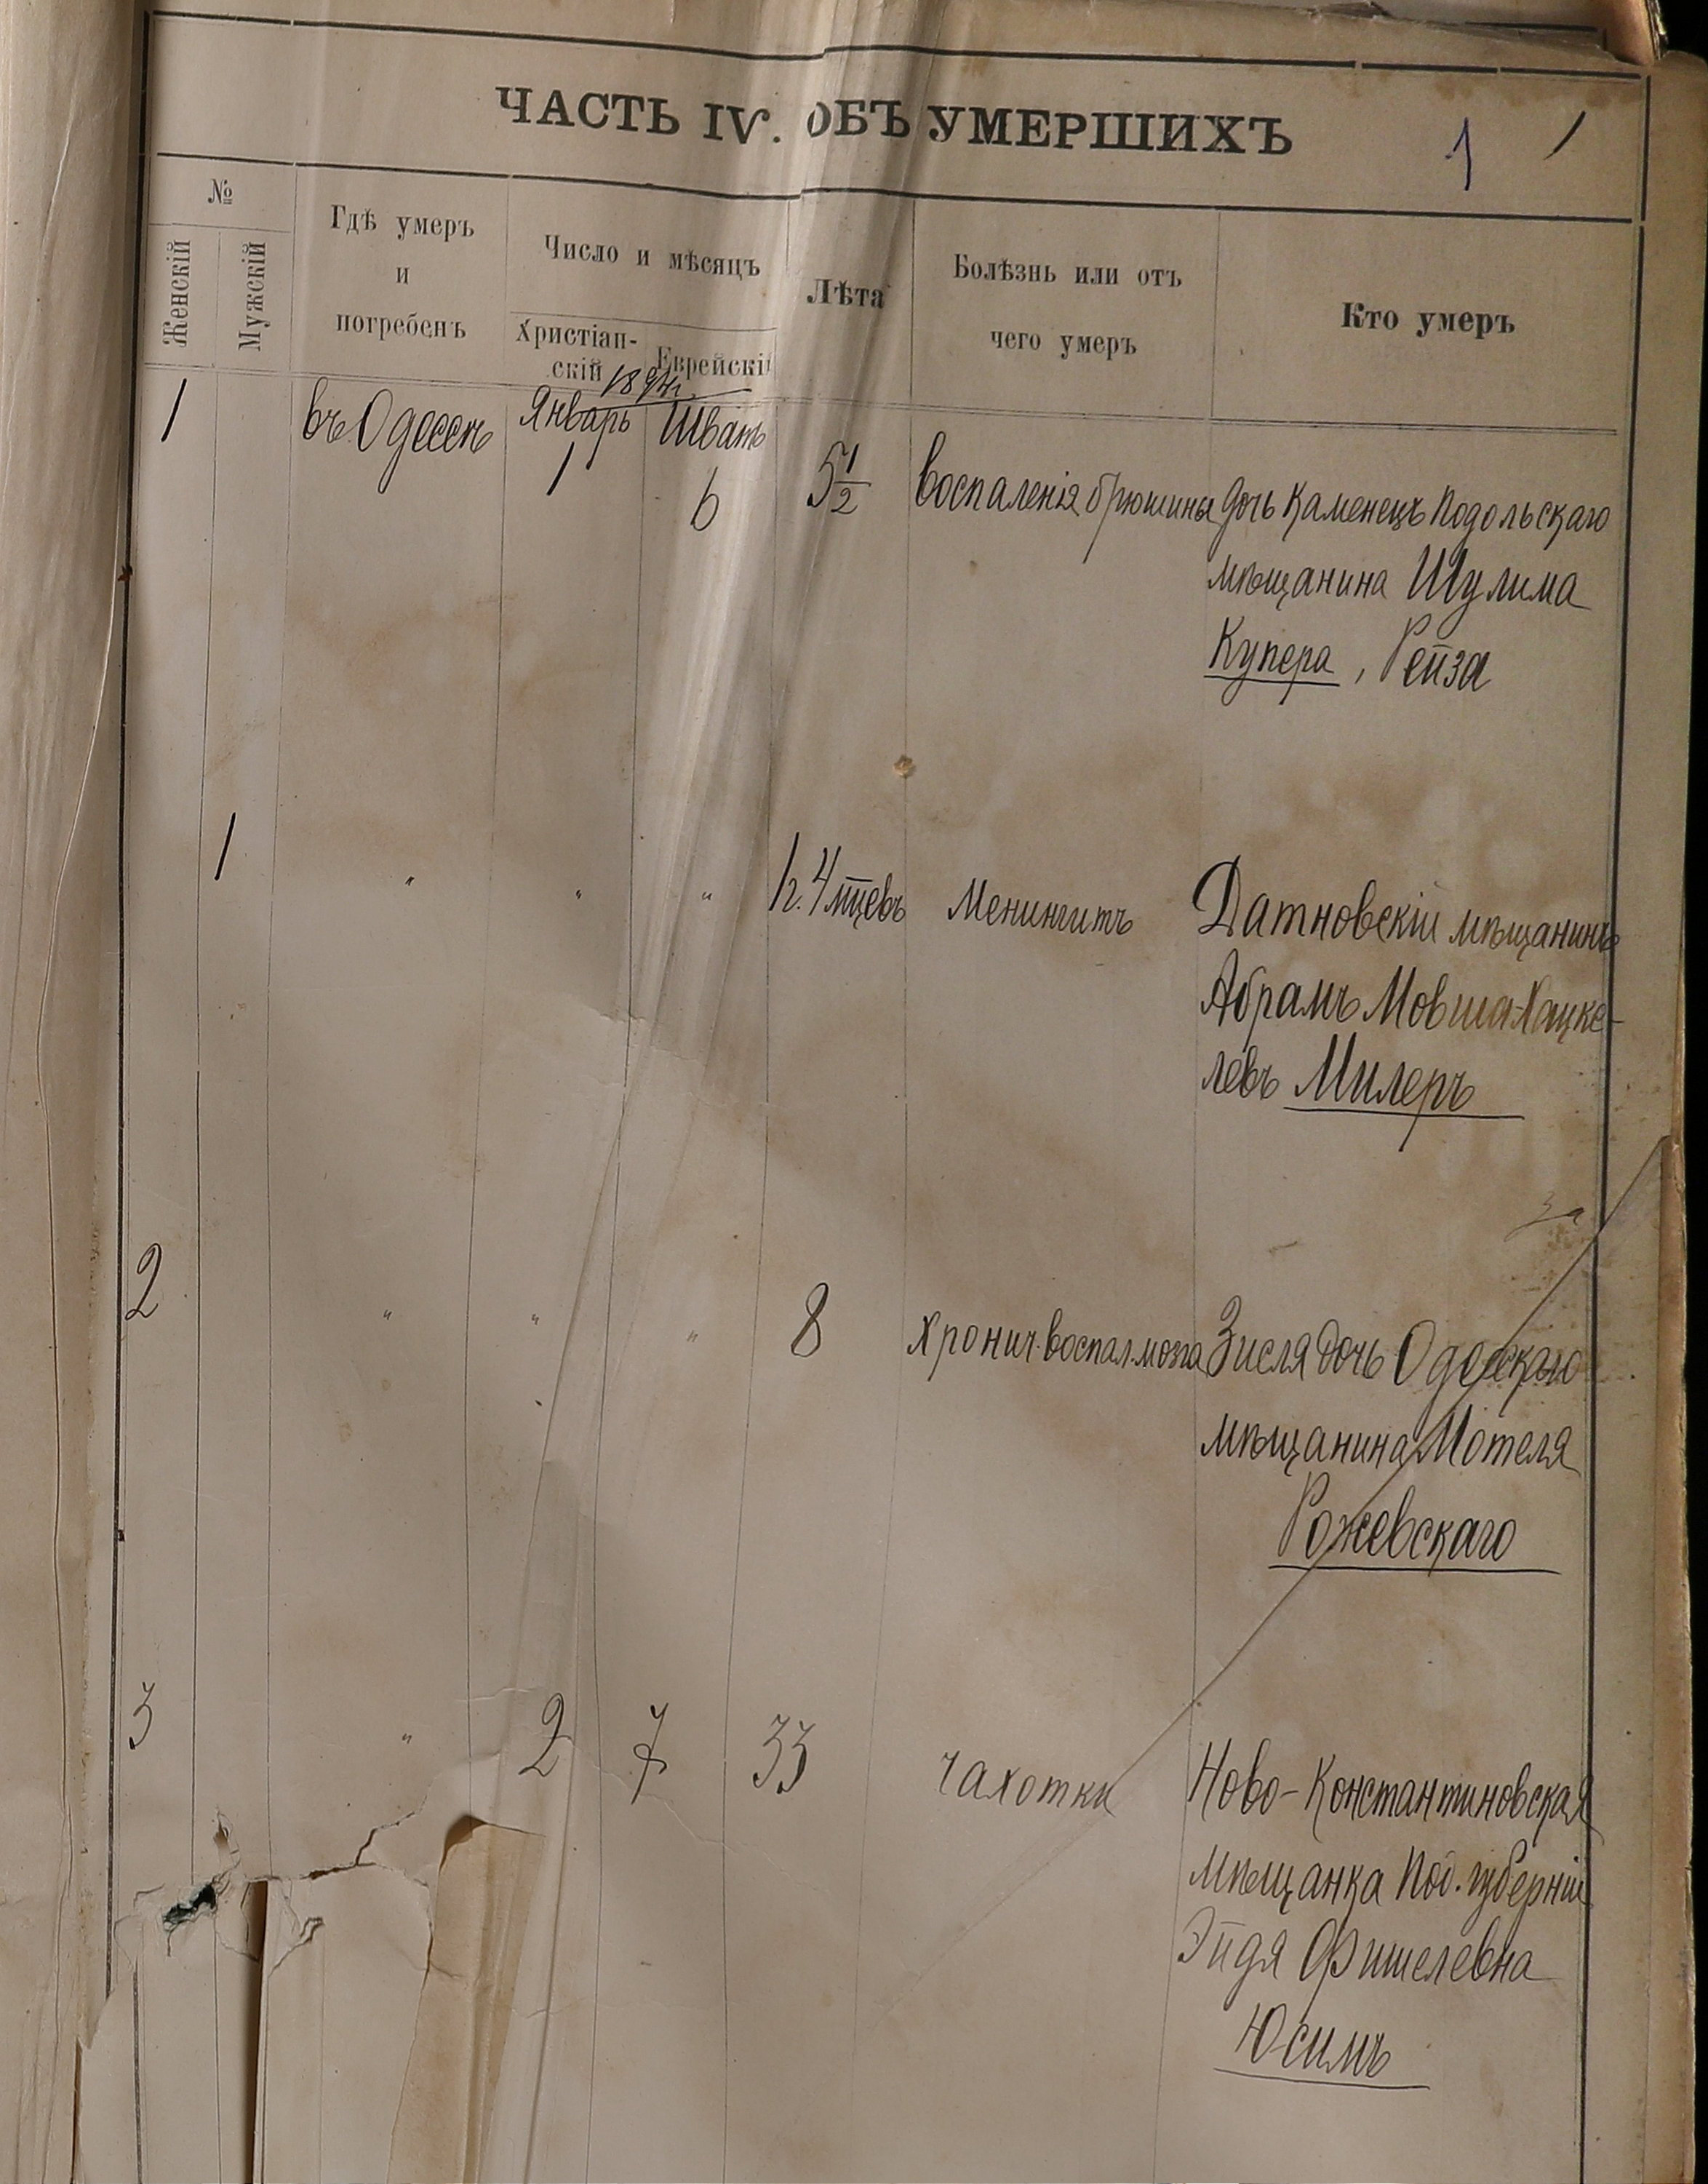 ЧАСТЬ IV. ОБЪ УМЕРШИХЪ
1 1
№
Женскій
Мужскій
Гдѣ умеръ
и
погребенъ
Число и мѣсяцъ
Христіан-
скій
Еврейскій
Лѣта
Болѣзнь или отъ
чего умеръ
Кто умеръ
1894 г.
1 въ Одессѣ Январь Шватъ
1 6 5 1/2 воспаленія брюшины дочь Каменецъ Подольскаго
мѣщанина Шулима
Купера, Рейза
1 " " " 1 г. 4 мѣцевъ Менингитъ Датновскій мѣщанинъ
Абрамъ Мовша-Хацке-
левъ Милеръ
за
2 " " " 8 Хронич. воспал. мозга Зисля дочь Одесскаго
мѣщанина Мотеля
Рожевскаго
3 " 2 7 33 чахотки Ново-Константиновская
мѣщанка Под. губерніи
Эйдя Фишелевна
Юсимъ